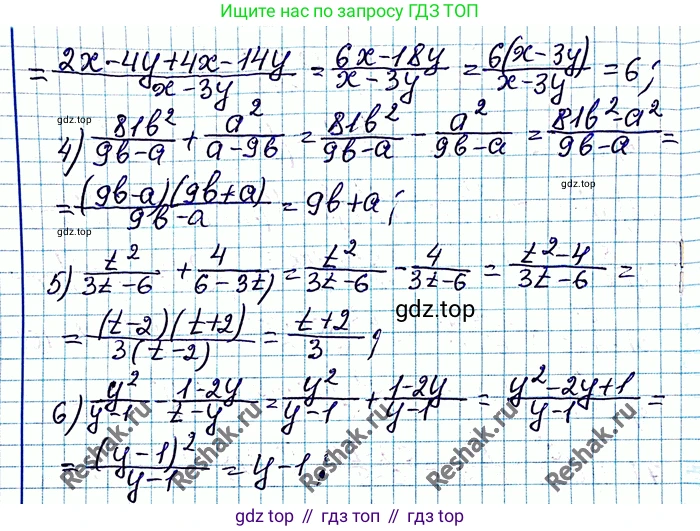 Ищите нас по запросу ГДЗ ТОП
= (2x-4y+4x-14y)/(x-3y) = (6x-18y)/(x-3y) = 6(x-3y)/(x-3y) = 6;
gdz.top gdz.top
4) 81b²/(9b-a) + a²/(a-9b) = 81b²/(9b-a) - a²/(9b-a) = (81b²-a²)/(9b-a) =
= (9b-a)(9b+a)/(9b-a) = 9b+a;
gdz.top
5) t²/(3t-6) + 4/(6-3t) = t²/(3t-6) - 4/(3t-6) = (t²-4)/(3t-6) =
gdz.top
= (t-2)(t+2)/3(t-2) = (t+2)/3;
6) y²/(y-1) - (1-2y)/(t-y) = y²/(y-1) + (1-2y)/(y-1) = (y²-2y+1)/(y-1) =
= (y-1)²/(y-1) = y-1;
Reshak.ru Reshak.ru Reshak.ru Reshak.ru
gdz.top // gdz.top // gdz.top // gdz.top